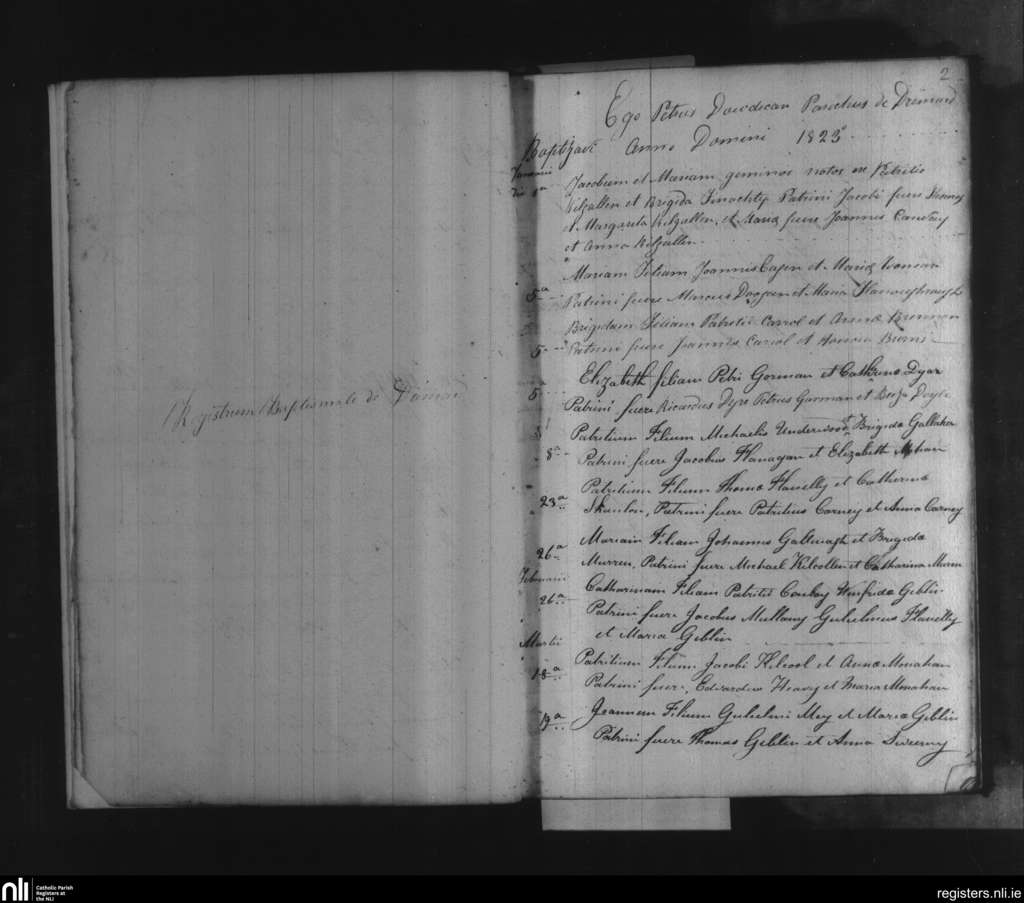 Registrum Baptismale de
2
Ego Petrus Dowdican Parochus de Drimard
Baptizavi Anno Domini 1823
Januarii
die 1a Jacobum et Mariam geminos natos ex Patritio
Kilgallen et Brigida Finaghty Patrini Jacobi fuere Thomas
et Margarita Kilgallen, et Mariæ fuere Joannes
et Anna Kilgallen.
Mariam Filiam Joannis et Mariæ
5a Patrini fuere Marcus et Maria
Brigidam Filiam Patritii Carrol et Annæ Brennan
5a Patrini fuere Joannes Carrol et Honoria Burns
Elizabeth filiam Petri Gorman et Cathrina Dyer
5a Patrini fuere Ricardus Dyre Petrus Gorman et Doyle
Patritium Filium Michaelis Underwood et Brigida Gallaher
8a Patrini fuere Jacobus Flanagan et Elizabeth
Patritium Filium Thomæ Flanelly et Catherina
23a Skanlon, Patrini fuere Patritius Carney et Anna Carney
Mariam Filiam Johannis et Brigida
26a Murren, Patrini fuere Michael et Catharina Murren
Februarii
26a Catharinam Filiam Patritii Conlay Winfrida Giblin
Patrini fuere Jacobus Mullany Gulielmus Flanelly
et Maria Giblin
Martii
Patritium Filium Jacobi Kilcool et Annæ Monahan
18a Patrini fuere, Edvardus Heavy et Maria Monahan
Joannem Filium Gulielmi Mey et Mariæ Giblin
19a Patrini fuere Thomas Giblin et Anna Sweeny
nli
Catholic Parish
Registers at
the NLI
registers.nli.ie